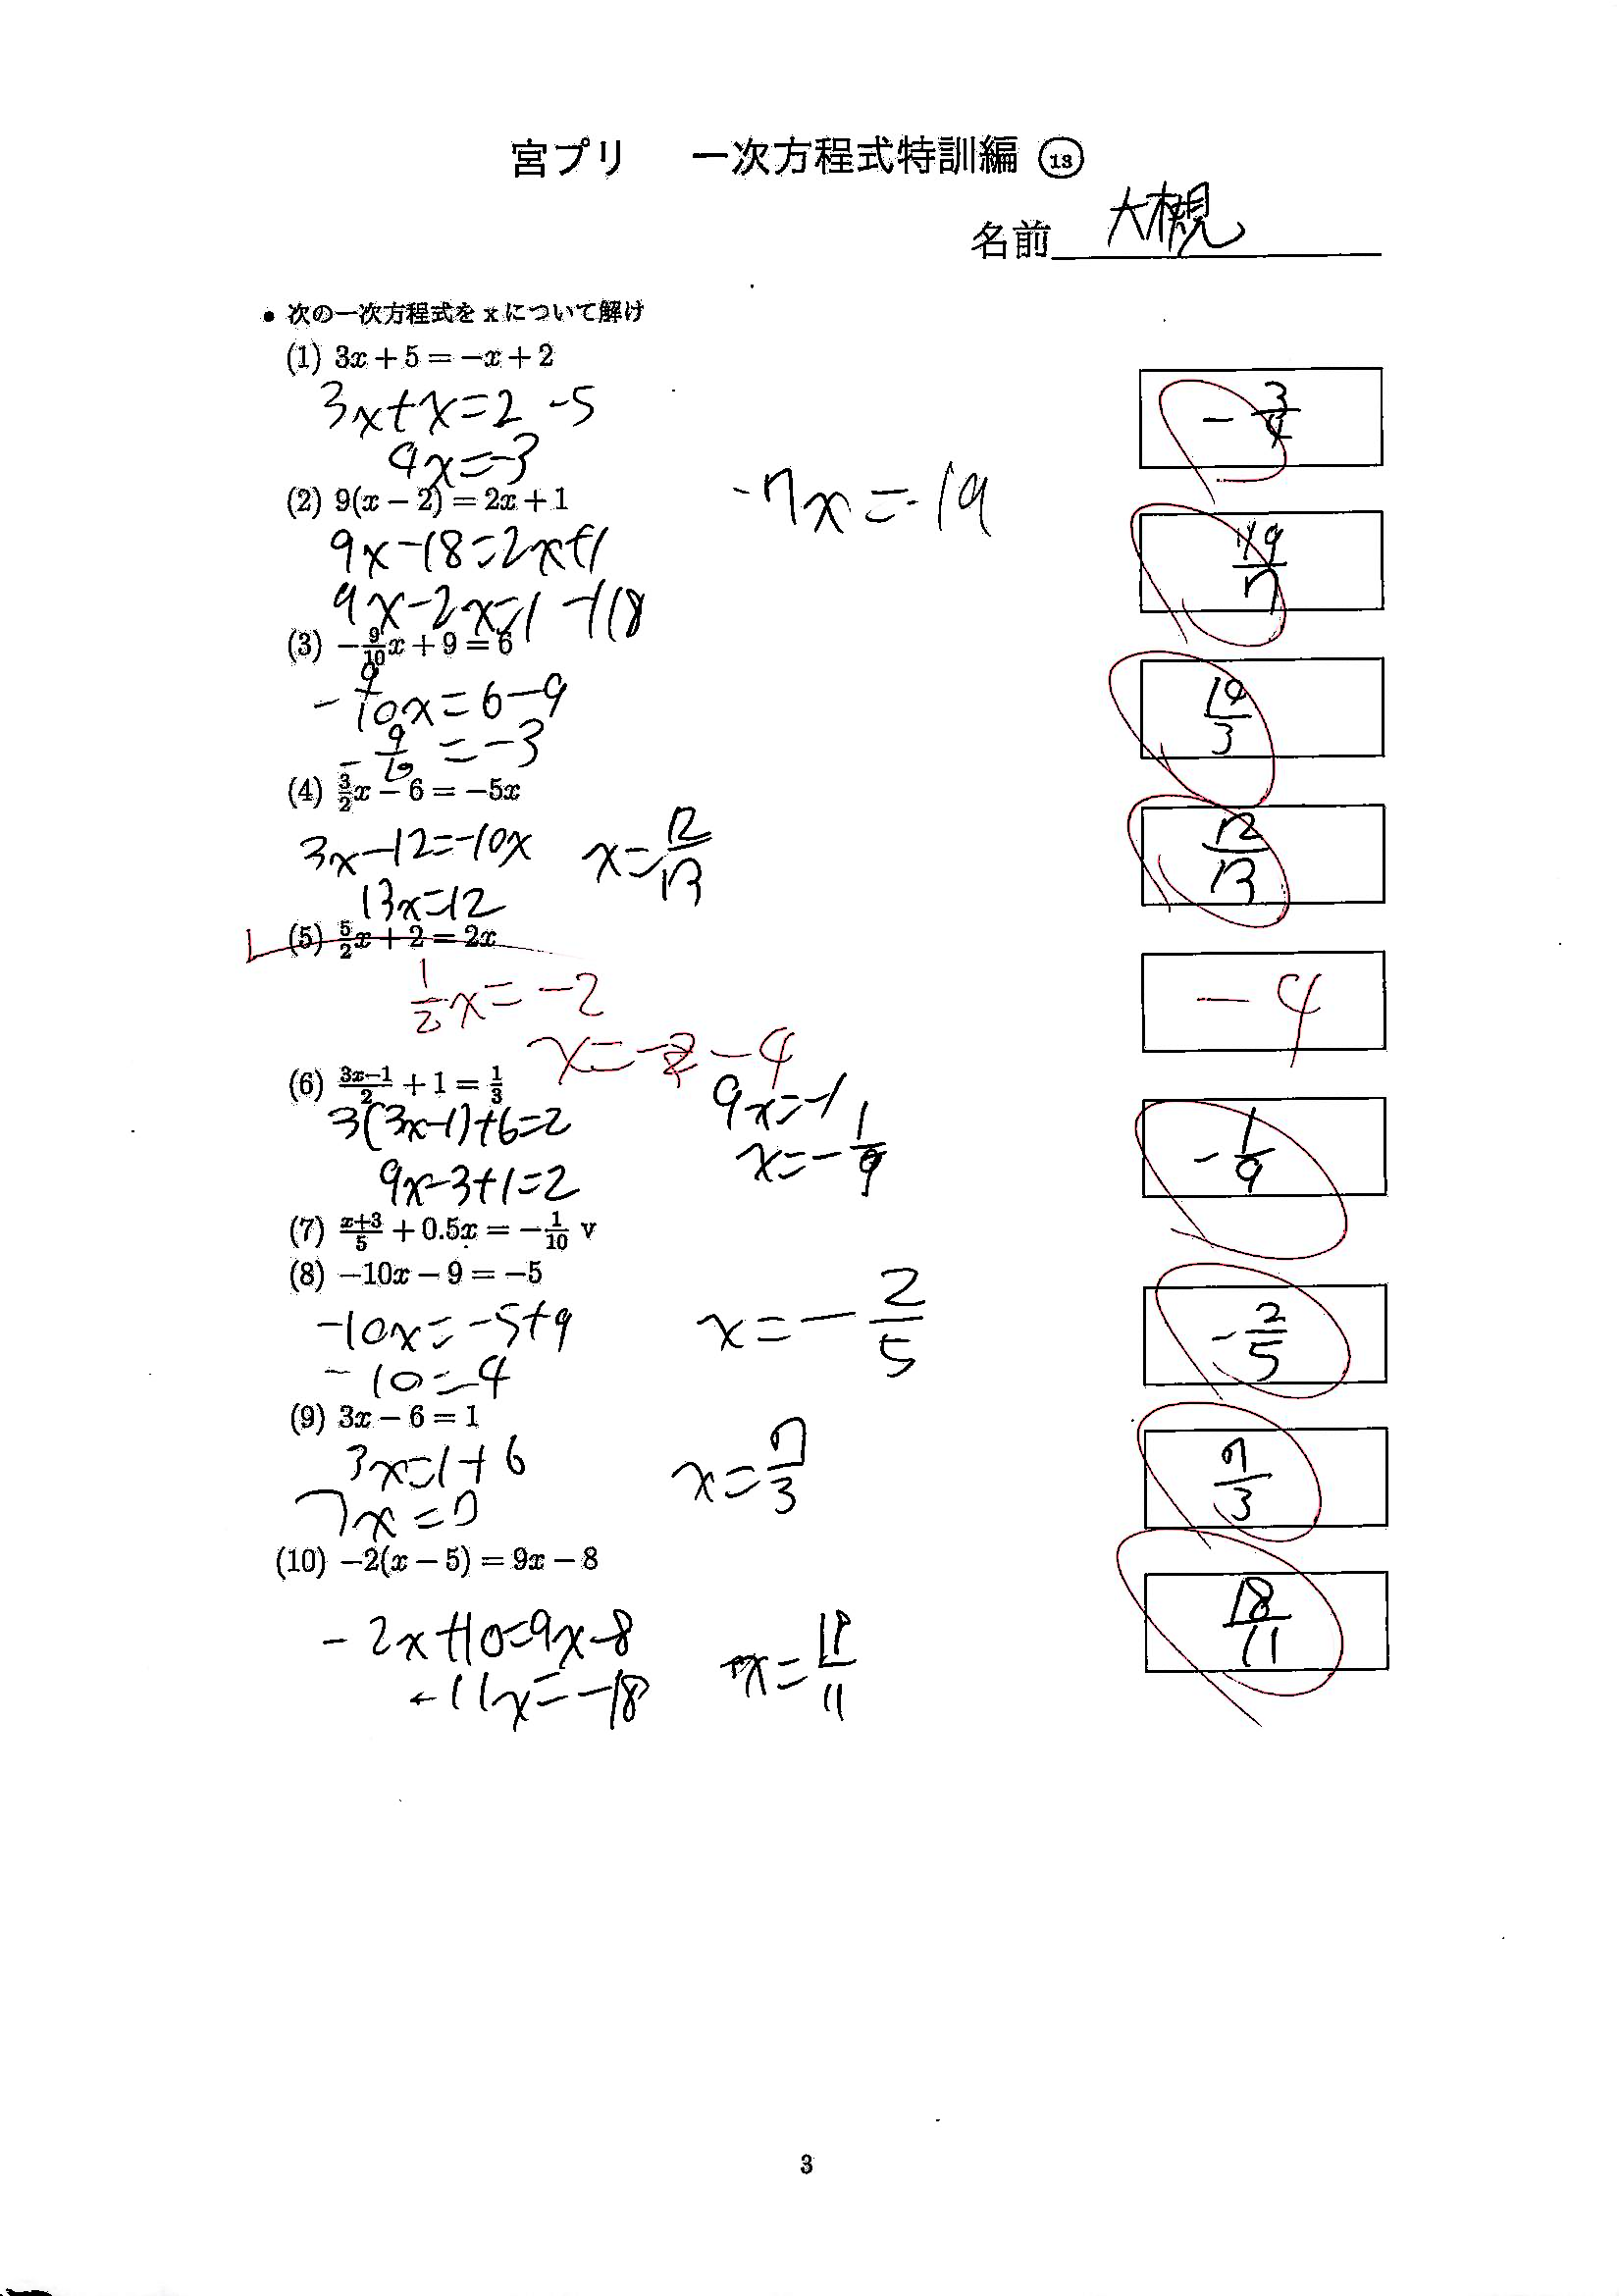 宮プリ 一次方程式特訓編 ⑬
名前 大槻
• 次の一次方程式を x について解け
(1) 3x + 5 = −x + 2
3x+x=2 -5
4x=-3
-3/4
(2) 9(x − 2) = 2x + 1
9x-18=2x+1
9x-2x=1+18
-7x=-19
19/7
(3) −9/10x + 9 = 6
-9/10x=6-9
-9/10=-3
10/3
(4) 3/2x − 6 = −5x
3x-12=-10x
13x=12
x=12/13
12/13
(5) 5/2x + 2 = 2x
1/2x=-2
x=-4
-4
(6) 3x−1/2 + 1 = 1/3
3(3x-1)+6=2
9x-3+1=2
9x=-1
x=-1/9
-1/9
(7) x+3/5 + 0.5x = −1/10 v
(8) −10x − 9 = −5
-10x=-5+9
-10=4
x=-2/5
-2/5
(9) 3x − 6 = 1
3x=1+6
7x=7
x=7/3
7/3
(10) −2(x − 5) = 9x − 8
-2x+10=9x-8
-11x=-18
x=18/11
18/11
3